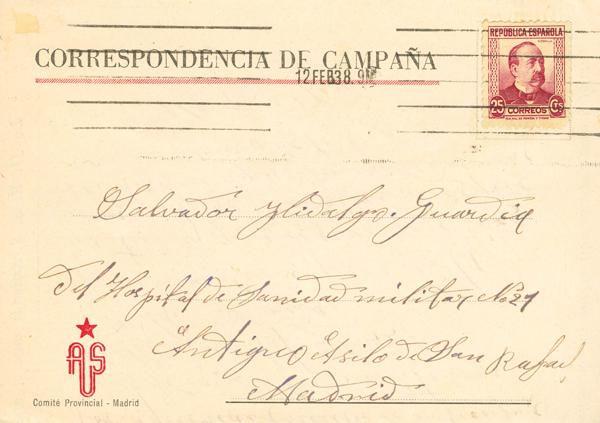 CORRESPONDENCIA DE CAMPAÑA
12 FEB 38. 9
REPÚBLICA ESPAÑOLA
25 CORREOS Cts
Salvador Hidalgo. Guardia
del Hospital de Sanidad militar, No 21
"Antiguo Asilo de San Rafael
Madrid
AUS
Comité Provincial - Madrid